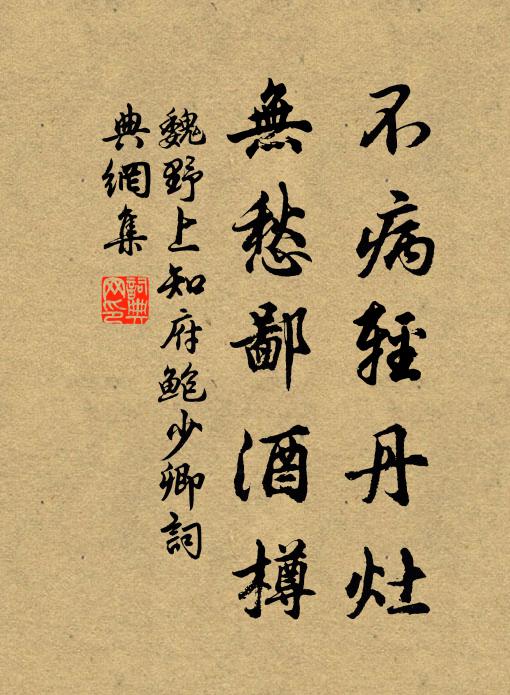 不病輕丹灶
無愁鄙酒樽
魏野上知府鮑少卿詞
典網集
詞典網印